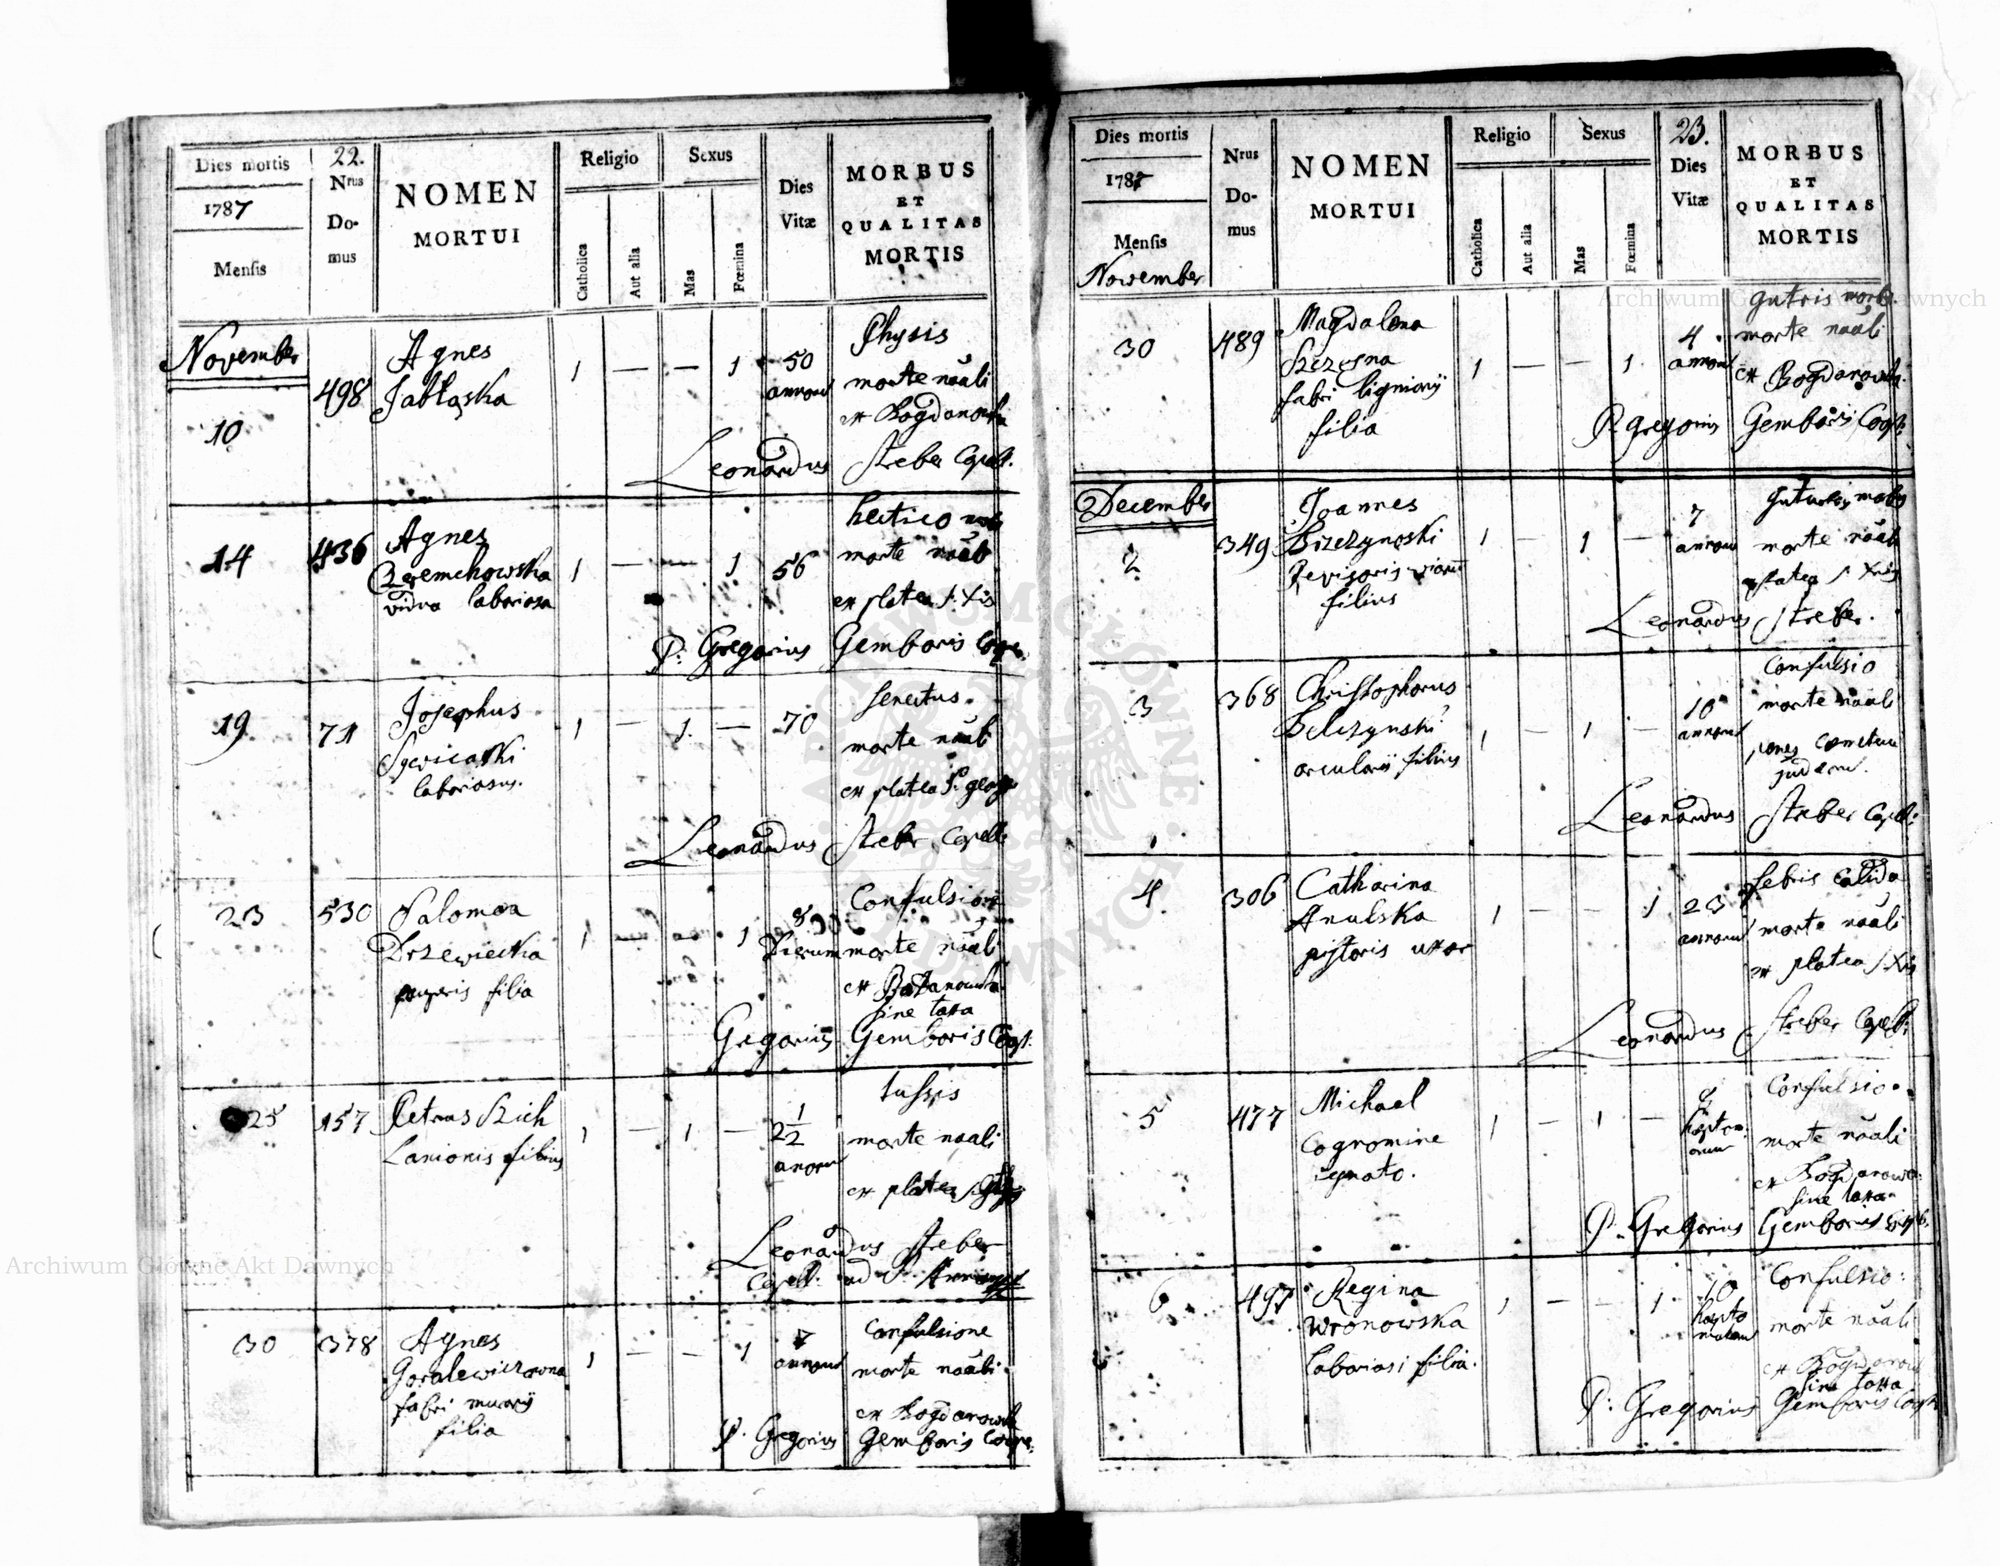 Dies mortis
1787
Mensis
22.
Nrus
Do-
mus
NOMEN
MORTUI
Religio
Catholica
Aut alia
Sexus
Mas
Fœmina
Dies
Vitæ
MORBUS
ET
QUALITAS
MORTIS
November
10
498
Agnes
Jabłąska
1 — — 1
50
annorum
Physis
morte nãali
ex Bogdanowka
Leonardus Streber Capell:
14
436
Agnes
vidua laboriosa
1 — — 1
56
hectico
morte nãali
ex platea S: Xis
P: Gregorius Gemboris
19
71
Josephus
laboriosus.
1 — 1 —
70
Senectus.
morte nãali
ex platea S: georg
Leonardus Streber Capell:
23
530
Salomea
Drzewiecka
pauperis filia
1 — — 1
8
Dierum
Confulsione
morte nãali
sine taxa
Gregorius Gemboris Coop:
25
157
Petrus Szich
Lanionis filius
1 — 1 —
2 1/2
annorum
tussis
morte naali
ex platea
Leonardus Streber
Capell: ad S:
30
378
Agnes
Goralewiczowna
fabri murarij
filia
1 — — 1
7
annorum
Confulsione
morte naali
ex Bogdanowka
P. Gregorius Gemboris
Dies mortis
1787
Mensis
November
Nrus
Do-
mus
NOMEN
MORTUI
Religio
Catholica
Aut alia
Sexus
Mas
Fœmina
23.
Dies
Vitæ
MORBUS
ET
QUALITAS
MORTIS
30
489
Magdalena
fabri lignarij
filia
1 — — 1
4
annorum
morte nãali
ex Bogdanowka
P. Gregorius Gemboris Coop:
December
2
349
Joannes
Brzezynski
filius
1 — 1 —
7
annorum
morte nãali
platea S: Xis
Leonardus Streber.
3
368
Christophorus
Belczynski
arcularij filius
1 — 1 —
10
annorum
Confulsio
morte naali
Leonardus Streber Capell:
4
306
Catharina
Anulska
pistoris uxor
1 — — 1
23
annorum
febris calida
morte nãali
ex platea S: Xis
Leonardus Streber Capell:
5
477
Michael
Cognomine
ignato.
1 — 1 —
Confulsio
morte nãali
ex Bogdanowka
sine taxa
P: Gregorius Gemboris
6
497
Regina
Wronowska
laboriosi filia.
1 — — 1
10
Confulsio:
morte nãali
ex Bogdanowka
sine taxa
P: Gregorius Gemboris Coop:
Archiwum Główne Akt Dawnych